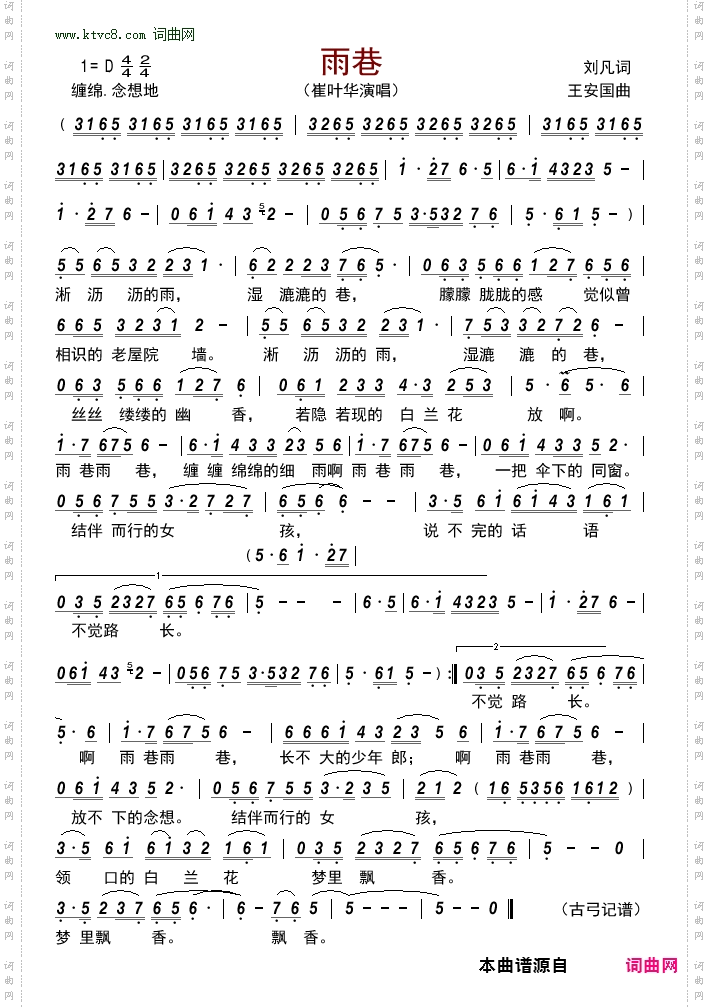 www.ktvc8.com 词曲网
雨巷
1=D 4/4 2/4
刘凡词
缠绵.念想地
（崔叶华演唱）
王安国曲
( 3165 3165 3165 3165 | 3265 3265 3265 3265 | 3165 3165
3165 3165 | 3265 3265 3265 3265 | 1·27 6·5 | 6·1 4323 5 - |
1·27 6 - | 061 43 5 2 - | 056 75 3·532 76 | 5·61 5 - )
55 6532 231· | 62 2223 765· | 063 566 127 656 |
淅 沥 沥的雨， 湿 漉漉的 巷， 朦朦 胧胧的感 觉似曾
665 3231 2 - | 55 6532 231· | 7533 2727 6 - |
相识的 老屋院 墙。 淅 沥 沥的 雨， 湿漉 漉 的 巷，
063 566 127 6 | 061 233 4·3 253 | 5·6 5·6 |
丝丝 缕缕的 幽 香， 若隐 若现的 白 兰 花 放 啊。
1·7 675 6 - | 6·1 433 23 56 | 1·7 675 6 - | 061 4335 52· |
雨 巷雨 巷， 缠 缠 绵绵的细 雨啊 雨 巷 雨 巷， 一把 伞下的 同窗。
056 755 3·2727 | 656 6 - - | 3·5 61 6143 161 |
结伴 而行的女 孩， 说 不 完的 话 语
(5·6 1·27 |
1
035 2327 656 76 | 5 - - - | 6·5 | 6·1 4323 5 - | 1·27 6 - |
不觉路 长。
061 43 5 2 - | 056 75 3·532 76 | 5·61 5 - ) :‖ 035 2327 656 76 |
2
不觉 路 长。
5·6 | 1·7 675 6 - | 6661 4323 5 | 5·6 | 1·7 675 6 - |
啊 雨 巷雨 巷， 长不 大的少年 郎； 啊 雨 巷雨 巷，
061 4352 2· | 056 755 3·235 | 212 ( 16 5356 1612 ) |
放不 下的念想。 结伴而行的 女 孩，
3·5 61 6132 161 | 035 2327 65676 | 5 - - 0 |
领 口的 白 兰 花 梦里 飘 香。
3·5 237 656· | 6 - 765 | 5 - - - | 5 - - 0 ‖ （古弓记谱）
梦 里飘 香。 飘 香。
本曲谱源自 词曲网
词曲网